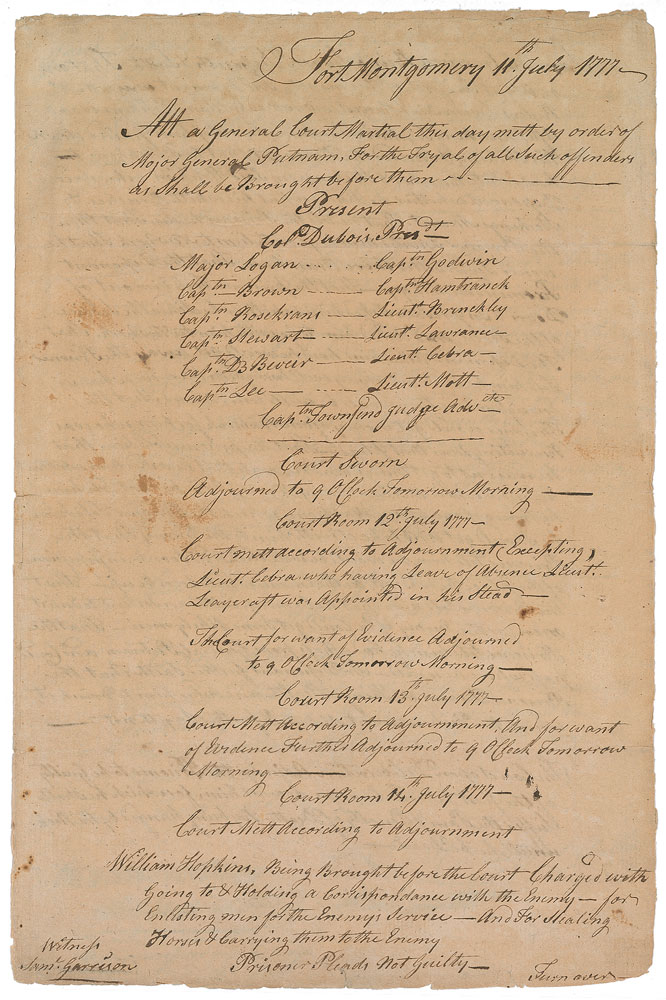 Fort Montgomery 11th July 1777
Att a General Court Martial this day mett by order of
Major General Putnam, For the Tryal of all Such offenders
as Shall be Brought before them
Present
Colo. Dubois, Presdt
Major Logan — Captn. Godwin
Captn Brown — Captn Hambranck
Captn. Rosekrans — Lieut. Brenckley
Captn Stewart — Lieut. Lawrance
Captn De Bevier — Lieut. Cebra
Captn Lee — Lieut. Mott
Captn. Townsend judge Advcte
Court Sworn
Adjourned to 9 OClock Tomorrow Morning —
Court Room 12th July 1777 —
Court mett according to Adjournment (Excepting)
Lieut. Cebra who having Leave of Absence Lieut.
Leaycraft was Appointed in his Stead —
The Court for want of Evidence Adjourned
to 9 OClock Tomorrow Morning —
Court Room 13th July 1777 —
Court Mett According to Adjournment. And for want
of Evidence Further Adjourned to 9 OClock Tomorrow
Morning —
Court Room 14th July 1777 —
Court Mett According to Adjournment
William Hopkins, Being Brought before the Court Charged with
Going to & Holding a Correspondance with the Enemy — for
Enlisting men for the Enemys Service — And For Stealing
Horses & Carrying them to the Enemy
Witness
Saml. Garrison
Prisoner Pleads Not Guilty —
Turn over —